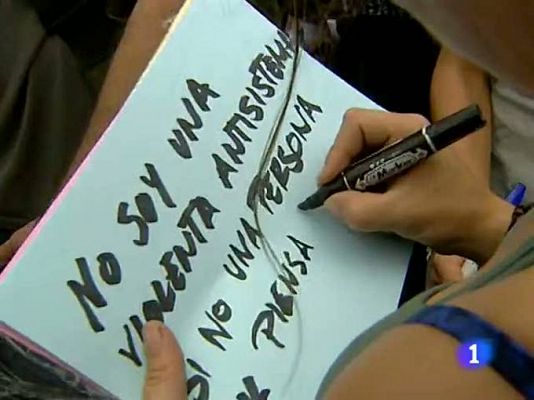 NO SOY UNA
VIOLENTA ANTISISTEMA
SI NO UNA PERSONA
PIENSA
1